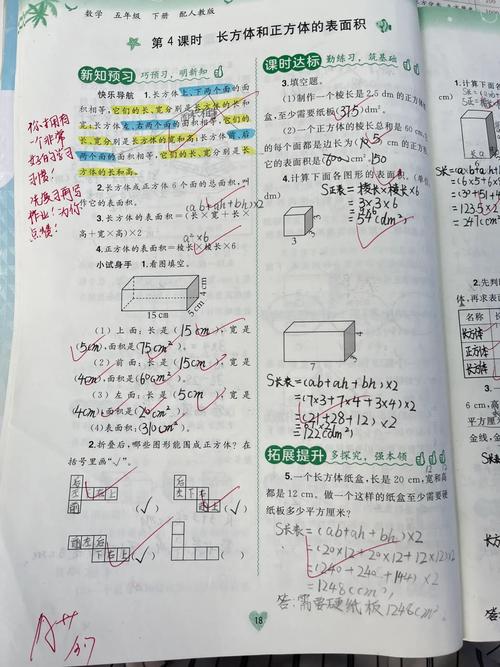 数学 五年级 下册 配人教版
第4课时 长方体和正方体的表面积
新知预习 巧预习，明新知
快乐导航 1.长方体上、下两个面的面
积相等，它们的长、宽分别是长方体的长和
宽；长方体左、右两个面的面积相等，它们的
长、宽分别是长方体的宽和高；长方体前、后
两个面的面积相等，它们的长、宽分别是长
方体的长和高。
2.长方体或正方体6个面的总面积，叫
作它的表面积。
(ab+ah+bh)×2
3.长方体的表面积=(长×宽+长×
高+宽×高)×2
a²×6
4.正方体的表面积=棱长×棱长×6
小试身手 1.看图填空。
15 cm
5 cm
4 cm
(1)上面：长是(15cm)，宽是
(5cm)，面积是(75cm²)。
(2)前面：长是(15cm)，宽是
(4cm)，面积是(60cm²)。
(3)左面：长是(5cm)，宽是
(4cm)，面积是(20cm²)。
(4)表面积：(310cm²)。
2.折叠后，哪些图形能围成正方体？在
括号里画“√”。
(√)
(√)
(√)
( )
你有用有
一个非常
好的学习
习惯！
点赞！
A++
3.7
课时达标 勤练习，筑基础
3.填空题。
(1)制作一个棱长是2.5 dm的正方体
盒，至少需要纸板(37.5)dm²。
(2)一个正方体的棱长总和是60 cm，它
的每个面都是边长为(5)cm的正方
它的表面积是(150)cm²。
4.计算下面各图形的表面积。
S正表=棱长×棱长×6
=3×3×6
=54(dm²)
3
3
7
3
4
S长表=(ab+ah+bh)×2
=(7×3+7×4+3×4)×2
=(21+28+12)×2
=61×2
=122(dm²)
拓展提升 多探究，强本领
5.一个长方体纸盒，长是20 cm，宽和高
都是12 cm。做一个这样的纸盒至少需要硬
纸板多少平方厘米？
S长表=(ab+ah+bh)×2
=(20×12+20×12+12×12)×2
=(240+240+144)×2
=1248(cm²)
答：需要硬纸板1248cm²。
18
1.计算下面
2.先判
再求表面
名称
长方体
正方体
长方体
6 cm，高
平方厘米
金